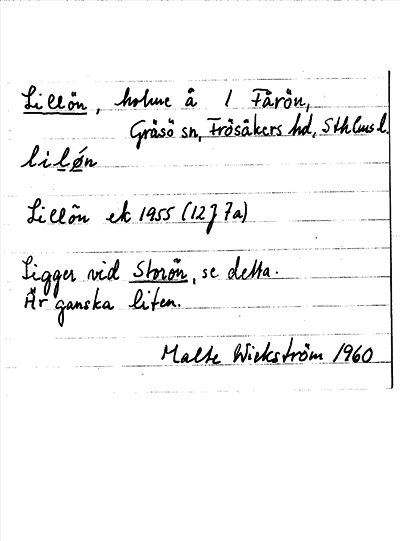 Lillön, holme å 1 Fårön,
Gräsö sn, Frösåkers hd, Sthlms l.
lilǿn
Lillön ek 1955 (12J 7a)
Ligger vid Storön, se detta.
Är ganska liten.
Malte Wickström 1960